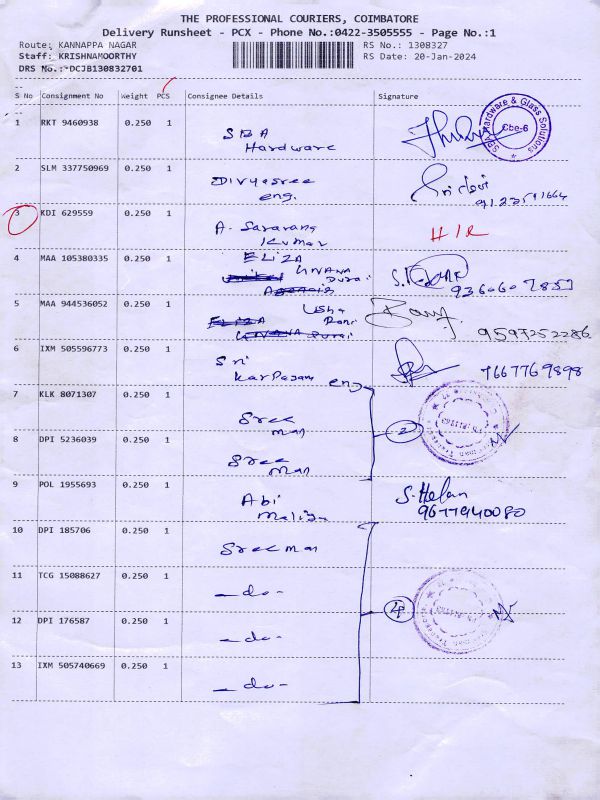 THE PROFESSIONAL COURIERS, COIMBATORE
Delivery Runsheet - PCX - Phone No.:0422-3505555 - Page No.:1
Route: KANNAPPA NAGAR RS No.: 1308327
Staff: KRISHNAMOORTHY RS Date: 20-Jan-2024
DRS No.:*DCJB130832701
S No Consignment No Weight PCS Consignee Details Signature
1 RKT 9460938 0.250 1 SBA Hardware
SBA Hardware & Glass Solutions Cbe-6
2 SLM 337750969 0.250 1 Divyasree eng. Sridevi
3 KDI 629559 0.250 1 A. Saravana Kumar H/R
4 MAA 105380335 0.250 1 ELIZA GNANA Durai
5 MAA 944536052 0.250 1 Usha Rani 9597252286
6 IXM 505596773 0.250 1 Sri Karpagam eng 7667769898
7 KLK 8071307 0.250 1 Sree man
2
8 DPI 5236039 0.250 1 Sree man
9 POL 1955693 0.250 1 Abi S. Helan
9677940080
10 DPI 185706 0.250 1 Sreeman
11 TCG 15088627 0.250 1 - do -
4
12 DPI 176587 0.250 1 - do -
13 IXM 505740669 0.250 1 - do -